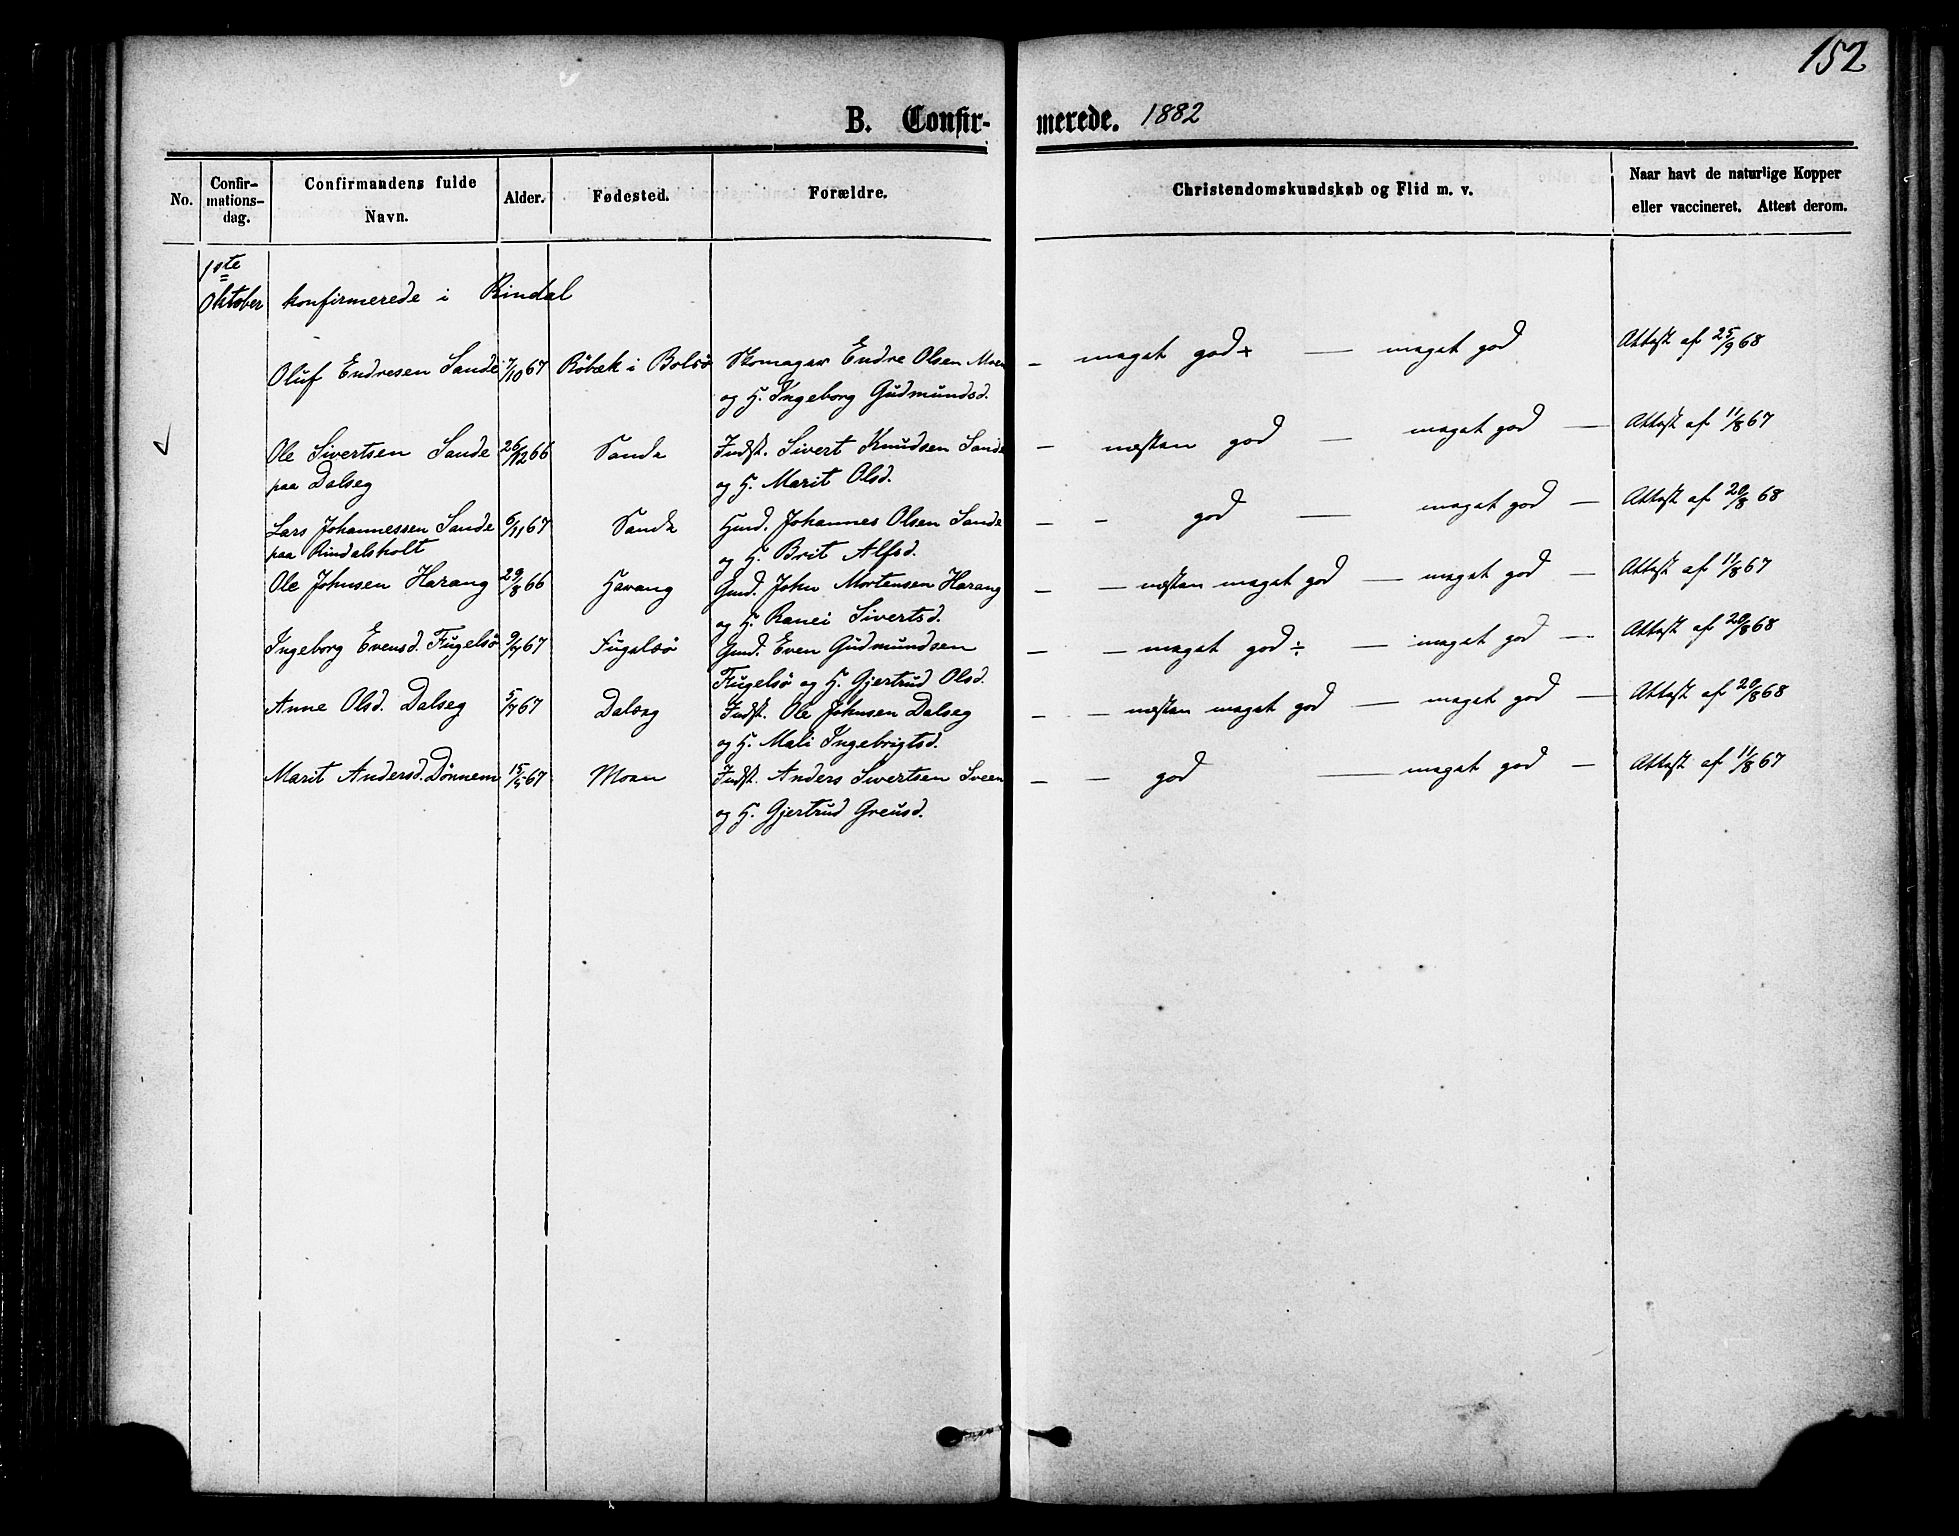 152
B. Confir- merede. 1882
No. Confir-mations-dag. Confirmandens fulde Navn. Alder. Fødested. Forældre. Christendomskundskab og Flid m. v. Naar havt de naturlige Kopper eller vaccineret. Attest derom.
1ste
Oktober konfirmerede i Rindal
Oluf Endresen Sande 7/10 67 Röbæk i Bolsö Skomager Endre Olsen Moen – meget god + — meget god Attest af 25/9 68
og H. Ingeborg Gudmundsd.
Ole Sivertsen Sande 26/12 66 Sande Indst. Sivert Knudsen Sande – næsten god — meget god — Attest af 11/8 67
paa Dalseg og H. Marit Olsd.
Lars Johannessen Sande 6/11 67 Sande Gmd. Johannes Olsen Sande – – god — meget god — Attest af 20/8 68
paa Rindalsholt og H. Brit Alfsd.
Ole Johnsen Harang 29/8 66 Harang Gmd. John Mortensen Harang – – næsten meget god — meget god — Attest af 11/8 67
og H. Ranei Sivertsd.
Ingeborg Evensd. Fugelsö 9/7 67 Fugelsö Gmd. Even Gudmundsen – – meget god ÷ — meget god — Attest af 20/8 68
Fugelsö og H. Gjertrud Olsd.
Anne Olsd. Dalseg 5/7 67 Dalseg Indst. Ole Johnsen Dalseg – – næsten meget god — meget god — Attest af 20/8 68
og H. Mali Ingebrigtsd.
Marit Andersd. Dönnem 15/5 67 Moen Indst. Anders Sivertsen Sveen – – god — meget god — Attest af 11/8 67
og H. Gjertrud Greusd.